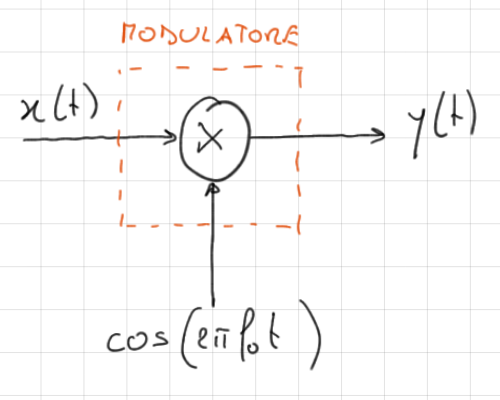 MODULATORE
x(t)
×
y(t)
cos(2πf₀t)